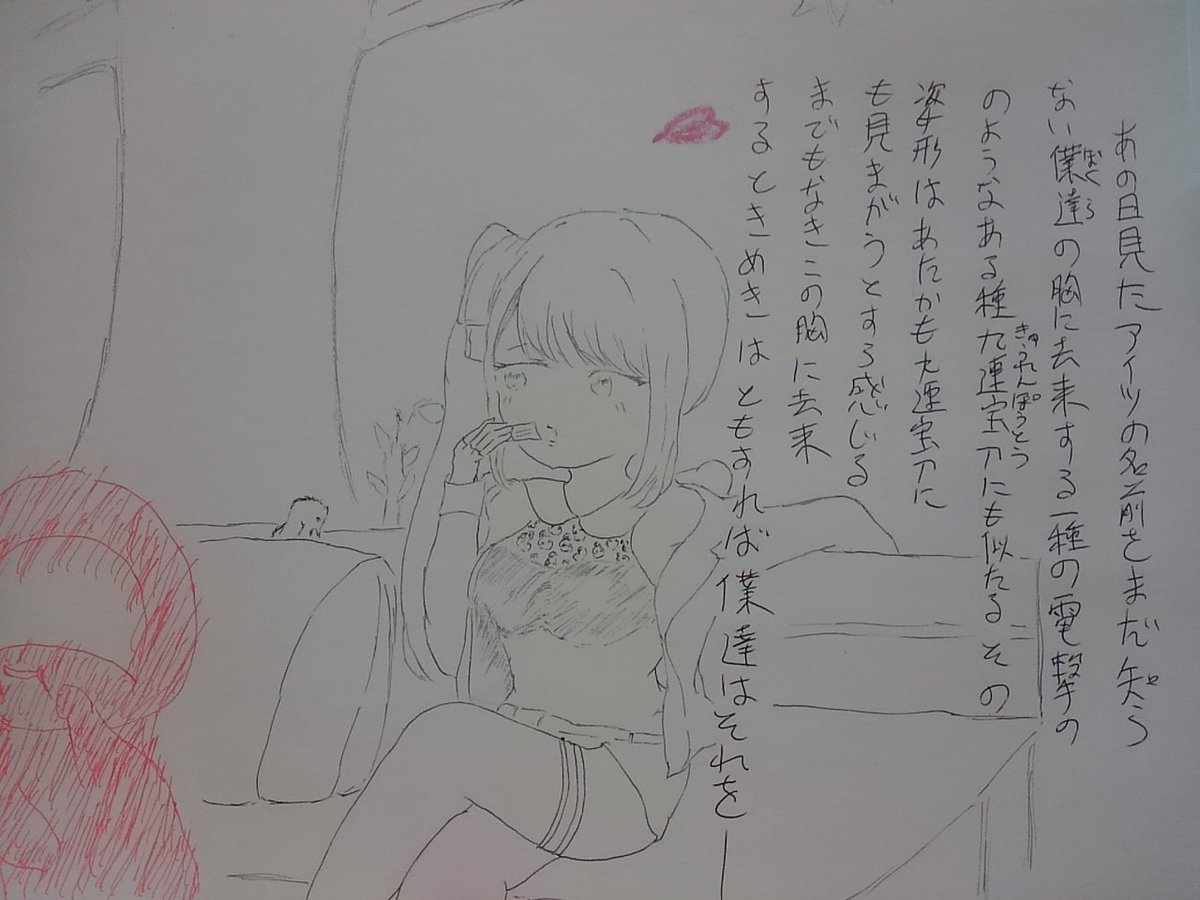 あの日見たアイツの名前をまだ知ら
ない僕達の胸に去来する一種の電撃の
ぼくら
のようなある種九連宝刀にも似たるその
きゅうれんぽうとう
姿形はあたかも九連宝刀に
も見まがうとする感じる
までもなきこの胸に去来
するときめきはともすれば僕達はそれを―